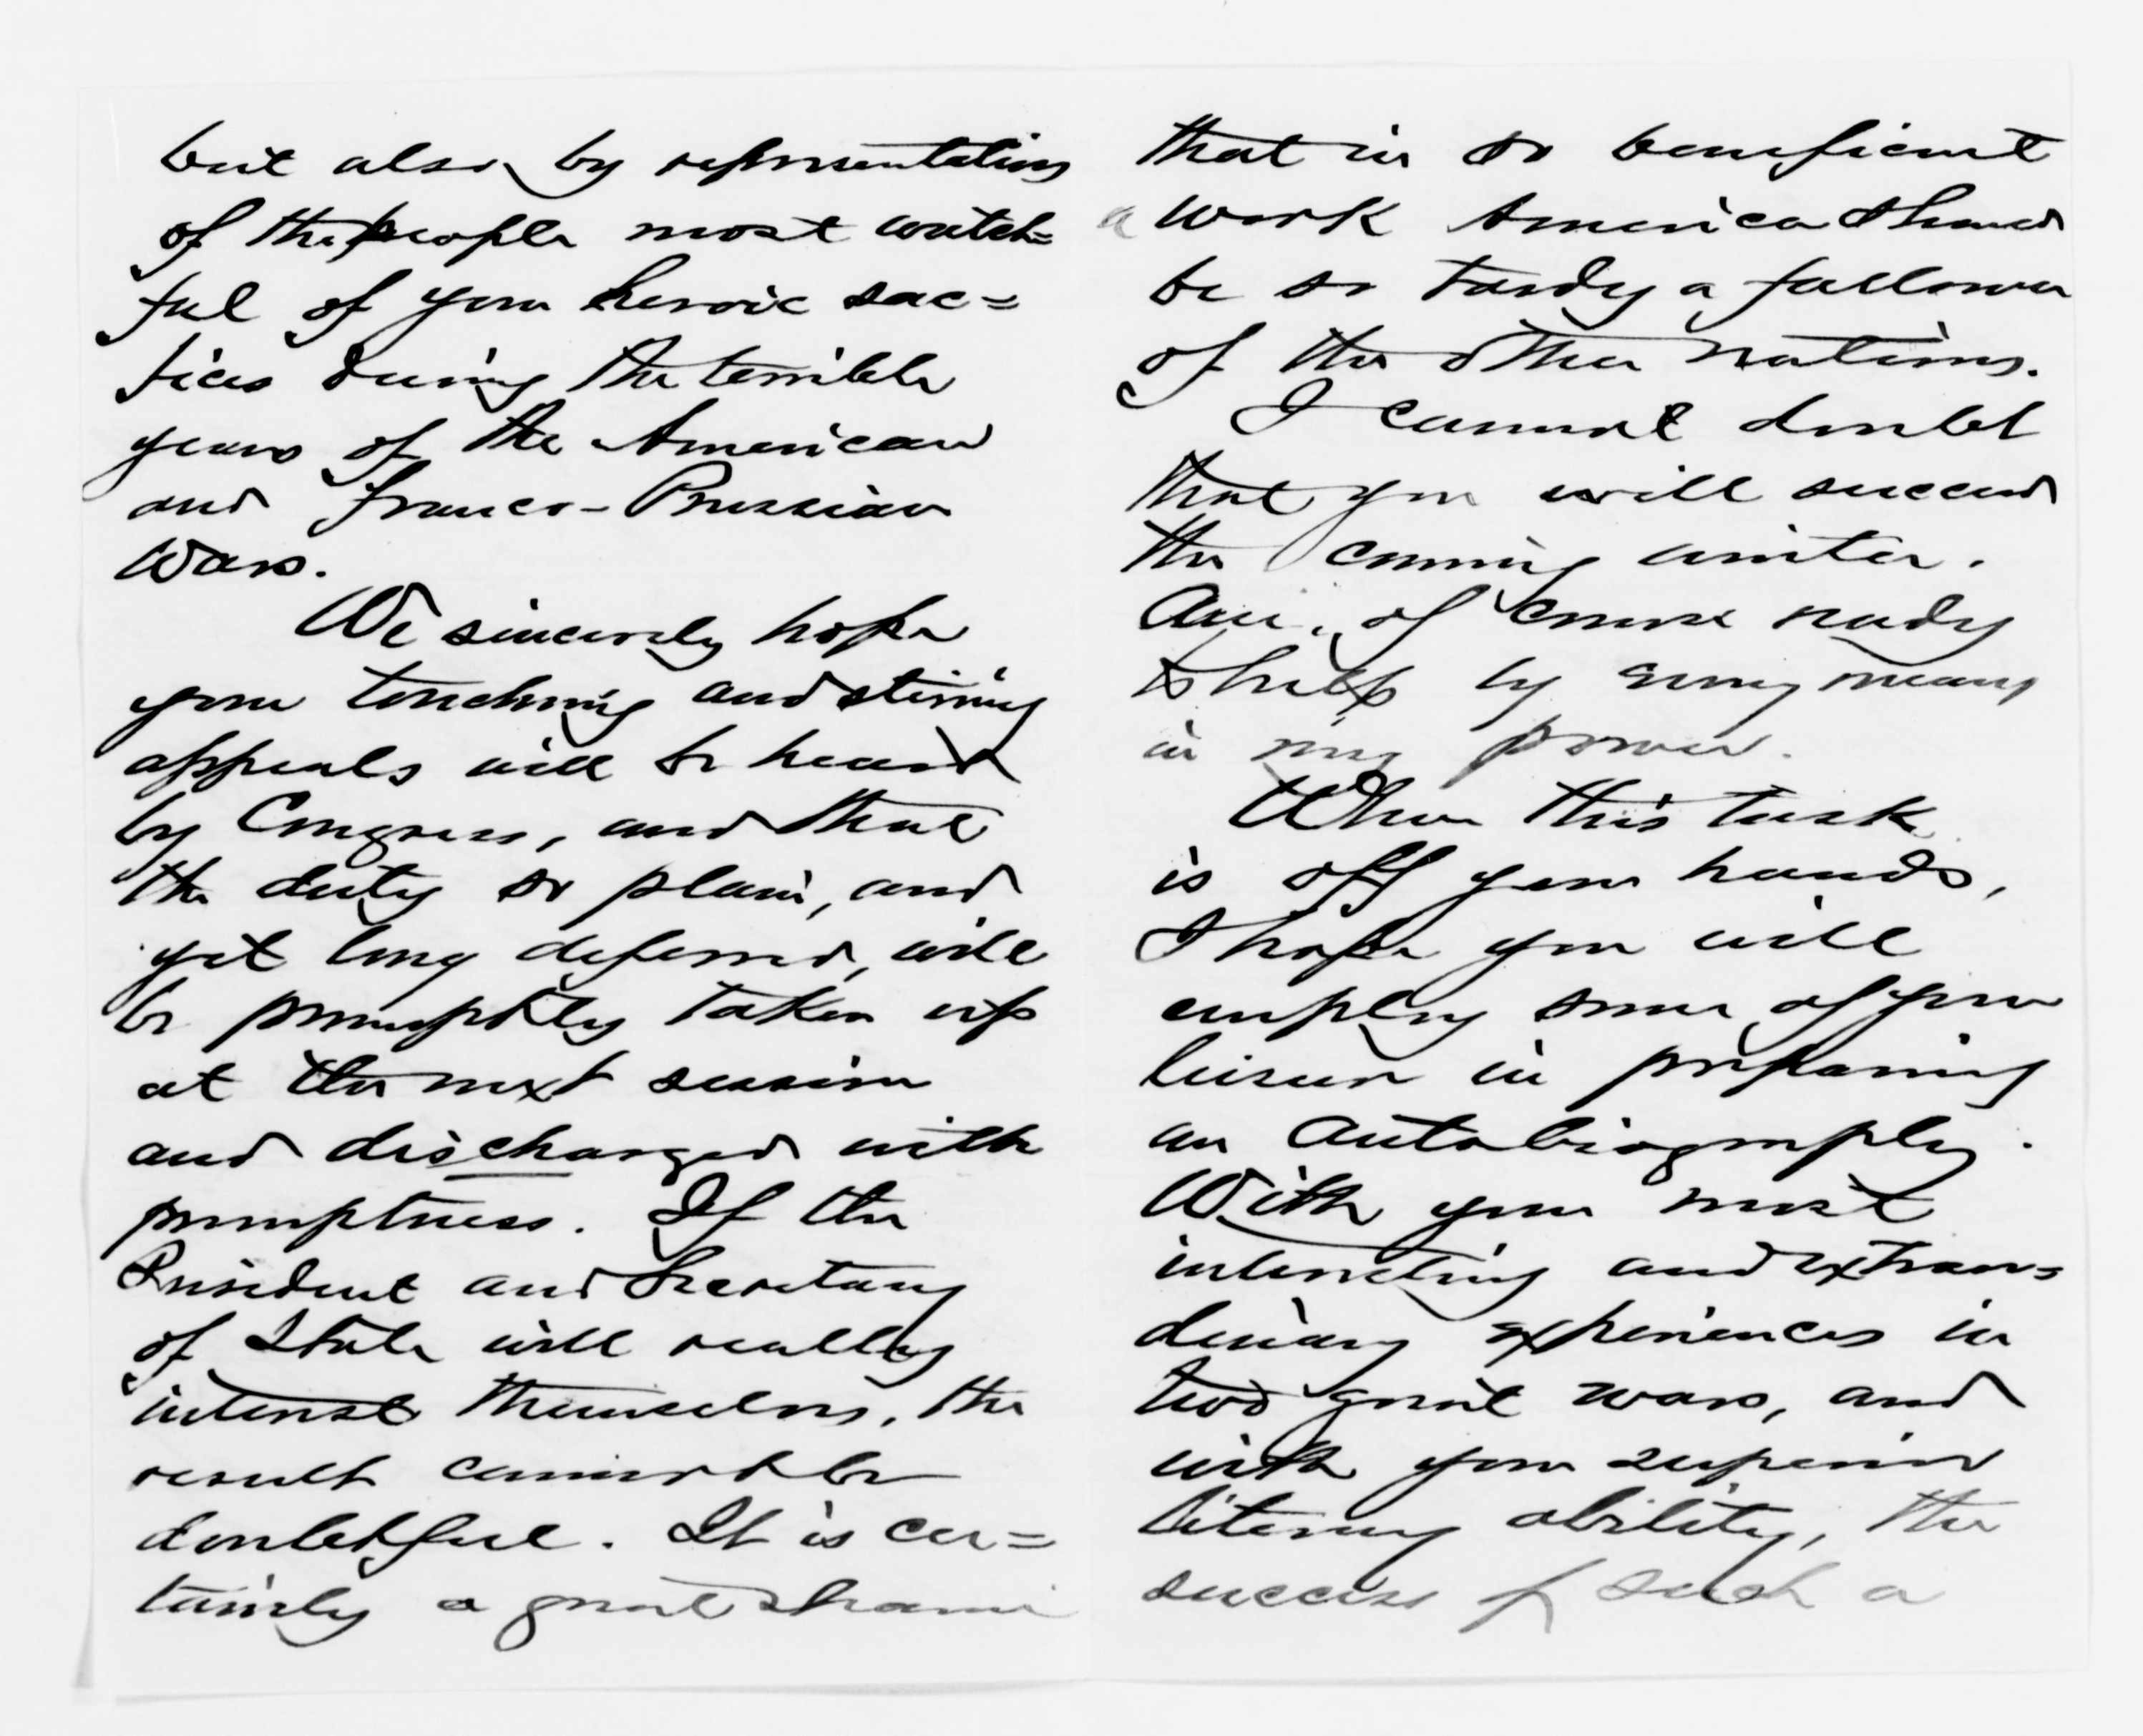 but also by representations
of the people most watch=
ful of your heroic sac=
fices during the terrible
years of the American
and Franco-Prussian
Wars.
We sincerely hope
your touching and stirring
appeals will be heard
by Congress, and that
the duty so plain, and
yet long deferred, will
be promptly taken up
at the next session
and discharged with
promptness. If the
President and Secretary
of State will really
interest themselves, the
result cannot be
doubtful. It is cer=
tainly a great shame
that in so beneficent
a work America should
be so tardy a follower
of the other nations.
I cannot doubt
that you will succeed
the coming winter.
Am, of course ready
to help by every means
in my power.
When this task
is off your hands,
I hope you will
employ some of your
leisure in preparing
an Autobiography.
With your most
interesting and extraor=
dinary experiences in
two great wars, and
with your superior
literary ability, the
success of such a